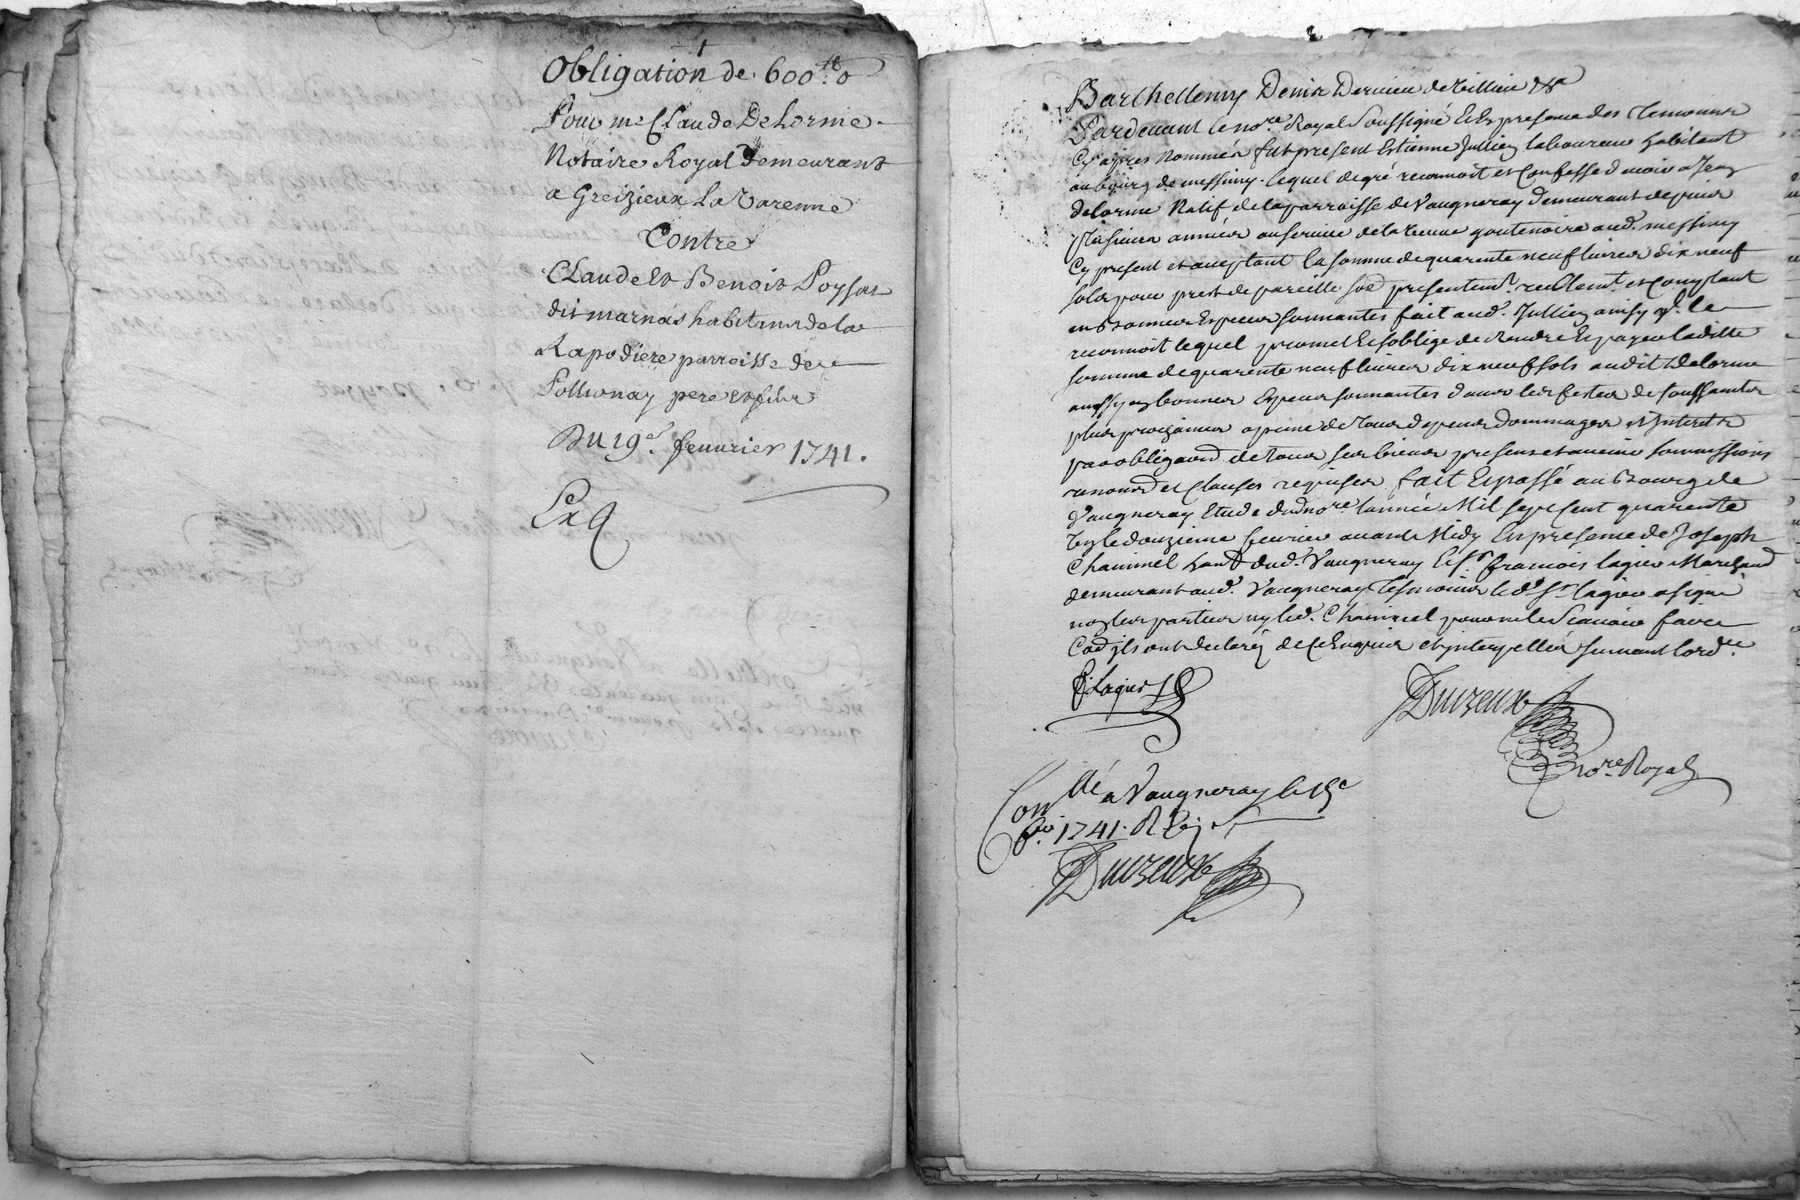 Obligation de 600ᵗᵗ 0
Pour mᵉ Claude Delorme
Notaire Royal Demeurant
a Greizieux La Varenne
Contre
Claude Et Benoit Poysat
dit marnas habitans de la
Rapodiere parroisse de
Pollionay pere et fils
Du 19ᵉ. feuurier 1741.
Ex
Barthellemy Denis Dervieu de Villieu
Pardeuant le noʳᵉ Royal Soussigné Et En presence des Temoins
Cy apres nommés fut present Estienne Jullien laboureur habitant
au bourg de messimy lequel de gré reconnoit et Confesse deuoir a Jean
delorme Natif de la parroisse de Vaugneray Demeurant depuis
plusieurs années au seruice de la veuue goutenoire aud. messimy
Cy present et acceptant la somme de quarente neuf liures dix neuf
sols pour prest de pareille presentemᵗ. reellemᵗ. et Comptant
en Bonnes Especes sonnantes fait aud. Jullien ainsy qᵘ. le
reconnoit lequel promet Et s'oblige de Rendre Et payer laditte
somme de quarente neuf liures dix neuf sols audit Delorme
aussy en bonnes Especes sonnantes dans les festes de toussaintes
plus prochaines a peine de tous depens dommages et Interets
par obligaoñ de tous ses biens presens et auenir soumissions
renonoñ et Clauses requises fait Et passé au Bourg de
Vaugneray Etude dud noʳᵉ lannée Mil sept Cent quarente
un le douzieme feurier auant Midy En presence de Joseph
Chaininel dud. Vaugneray Et sʳ. francois lagier Marchand
demeurant aud. Vaugneray Tesmoins led. sʳ lagier a signé
non les parties ny led. Chaininel pour ne le Scauoir faire
Cōe ils ont declaré de Ce Enquis et interpellés suiuant lordᶜᵉ.
Lagier
Duizeux
noʳᵉ Royal
Conᵗˡˡᵉ a Vaugneray le 15ᵉ
1741. R
Duizeux